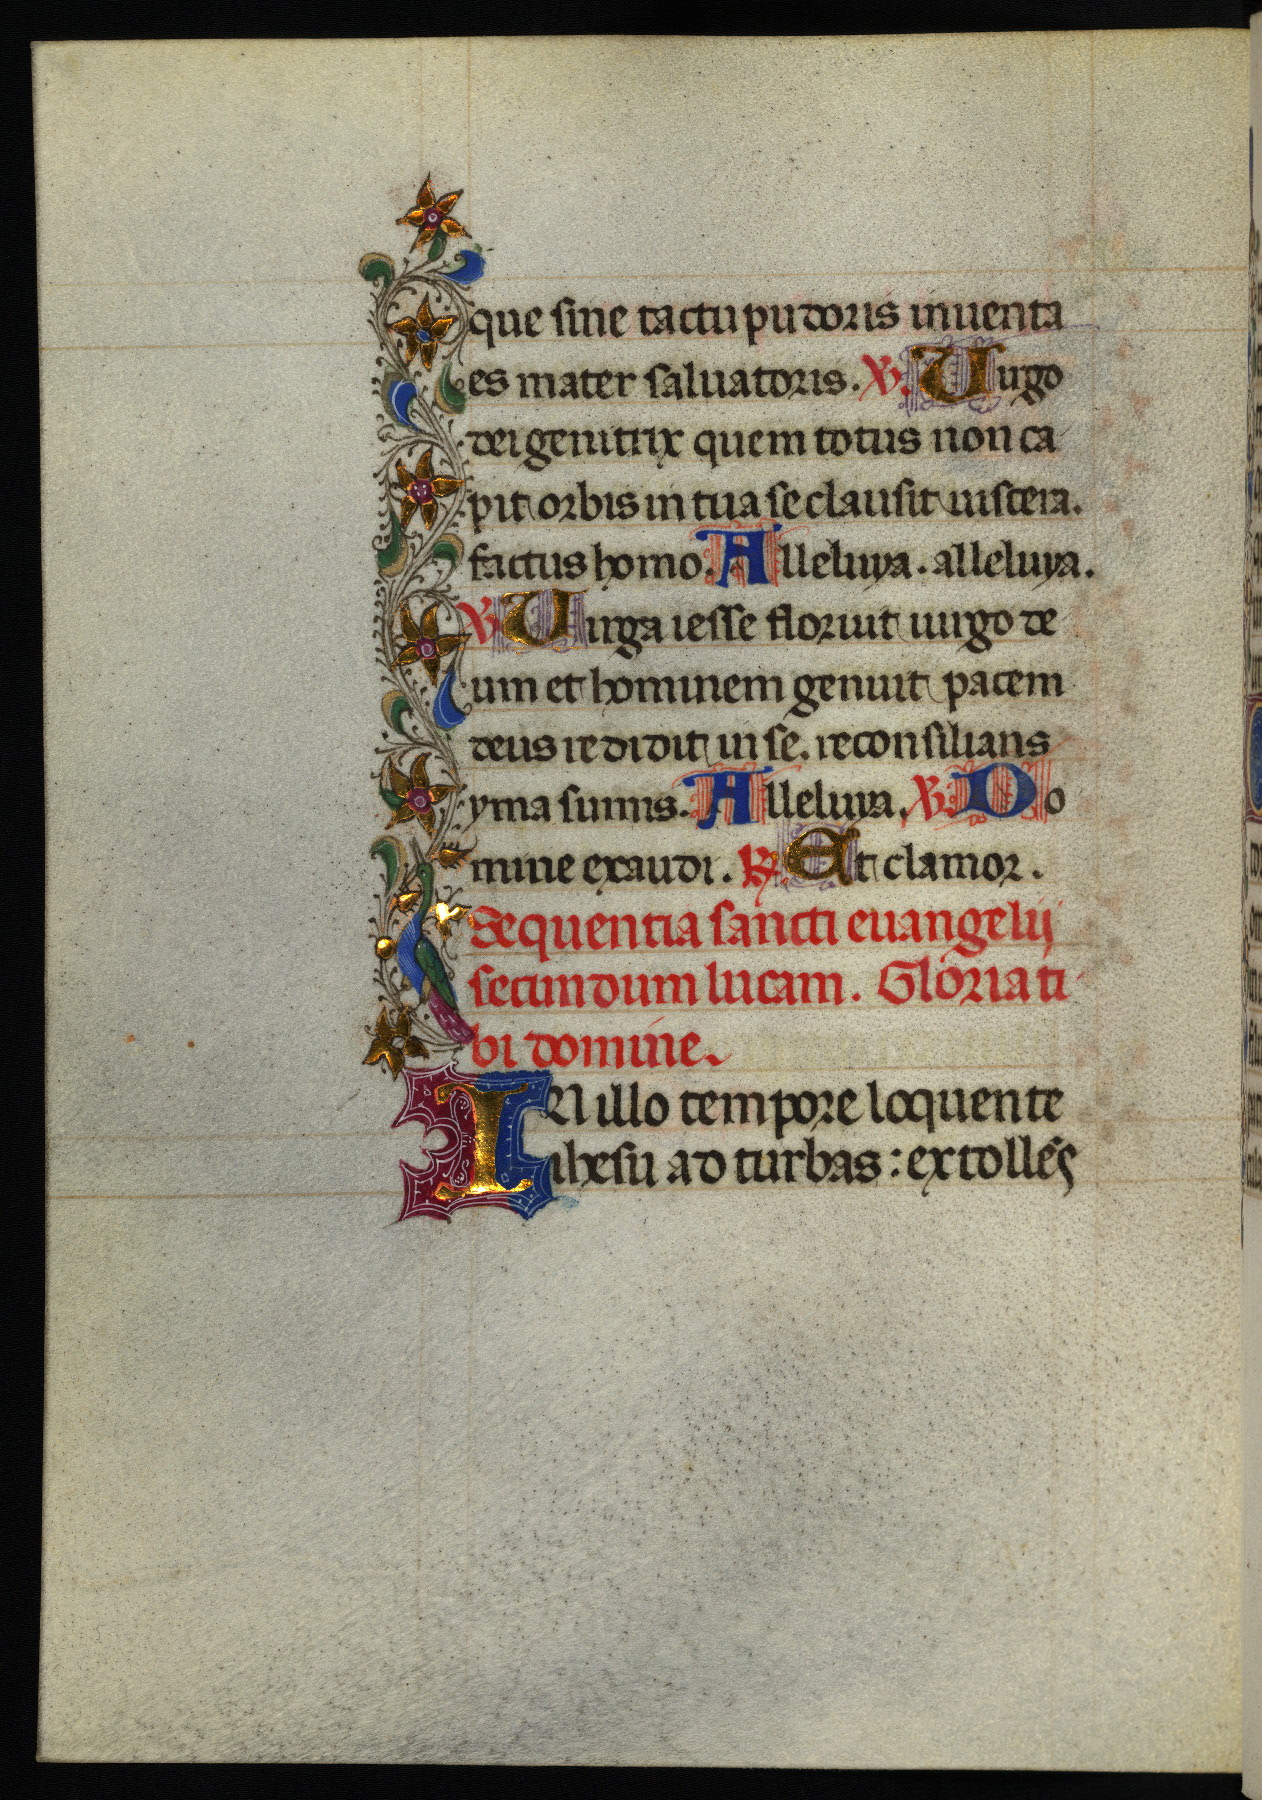 que sine tactu pudoris inuenta
es mater saluatoris. V. Uirgo
dei genitrix quem totus non ca
pit orbis in tua se clausit uiscera.
factus homo. Alleluya. alleluya.
V Uirga iesse floruit uirgo de
um et hominem genuit pacem
deus redidit in se. reconsilians
yma sumis. Alleluya. V. Do
mine exaudi. R. Et clamor.
Sequentia sancti euangelij
secundum lucam. Gloria ti
bi domine.
IN illo tempore loquente
ihesu ad turbas: extollēs